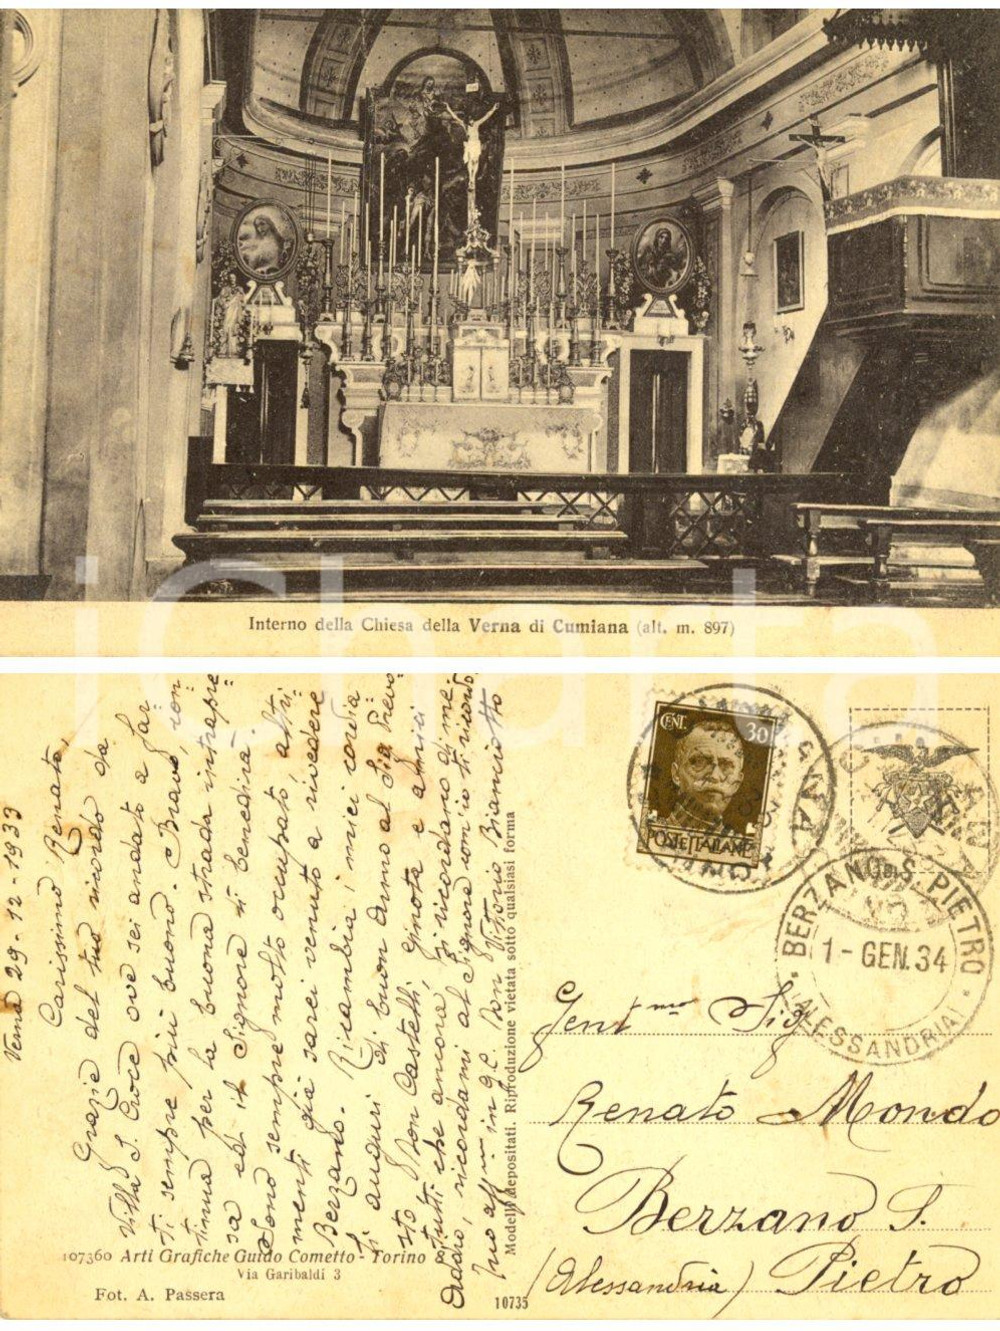 Interno della Chiesa della Verna di Cumiana (alt. m. 897)
iCharta
Verna 29-12-1933
Carissimo Renato,
Grazie del tuo ricordo da
Villa S. Croce ove sei andato a far-
ti sempre più buono. Bravo, con-
tinua per la buona strada intrapre-
sa ed il Signore ti benedirà.
Sono sempre molto occupato, altri-
menti già sarei venuto a rivedere
Berzano. Ricambia i miei cordia-
li auguri di buon anno al Sig. Prevo-
sto, Don Castelli, Ginota e amici
tutti che ancora si ricordano di me.
Addio, ricordami al Signore com'io ti ricordo
tuo aff.mo in G.C. Don Vittorio Bianciotto
107360 Arti Grafiche Guido Cometto - Torino
Via Garibaldi 3
Fot. A. Passera
Modelli depositati. Riproduzione vietata sotto qualsiasi forma
10735
CENT. 30
POSTE ITALIANE
BERZANO DI S. PIETRO
1 - GEN. 34
(ALESSANDRIA)
Gent.mo Sig.
Renato Mondo
Berzano S.
Pietro
(Alessandria)